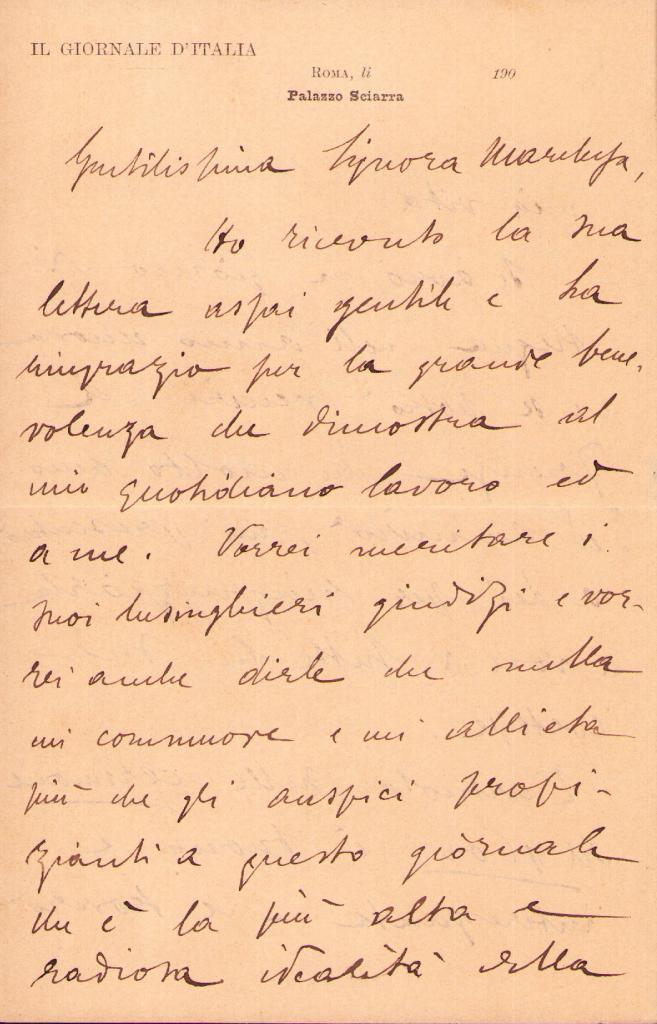 IL GIORNALE D'ITALIA
ROMA, li 190
Palazzo Sciarra
Gentilissima Signora Marchesa,
Ho ricevuto la sua
lettera assai gentile e La
ringrazio per la grande bene-
volenza che dimostra al
mio quotidiano lavoro ed
a me. Vorrei meritare i
suoi lusinghieri giudizi e vor-
rei anche dirle che nulla
mi commuove e mi allieta
più che gli auspici propi-
zianti a questo giornale
che è la più alta e
radiosa idealità della